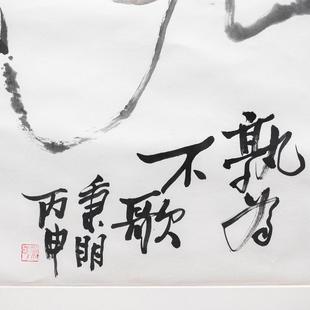 孰为
不歌
秉明
丙申